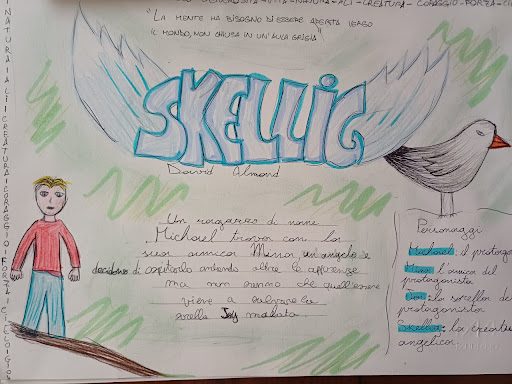 VITA - NATURA - ALI - CREATURA - CORAGGIO - FORZA
"LA MENTE HA BISOGNO DI ESSERE APERTA VERSO
IL MONDO, NON CHIUSA IN UN'AULA GRIGIA"
SKELLIG
David Almond
Un ragazzo di nome
Michael trova con la
sua amica Mina un angelo e
decidono di ospitarlo andando oltre le apparenze
ma non sanno che quell'essere
viene a salvare la
sorella Joy malata.
Personaggi
Michael: il protago
Mina: l'amica del
protagonista
Joy: la sorella de
protagonista
Skellig: la creatu
angelica
NATURA | ALI | CREATURA | CORAGGIO | FORZA